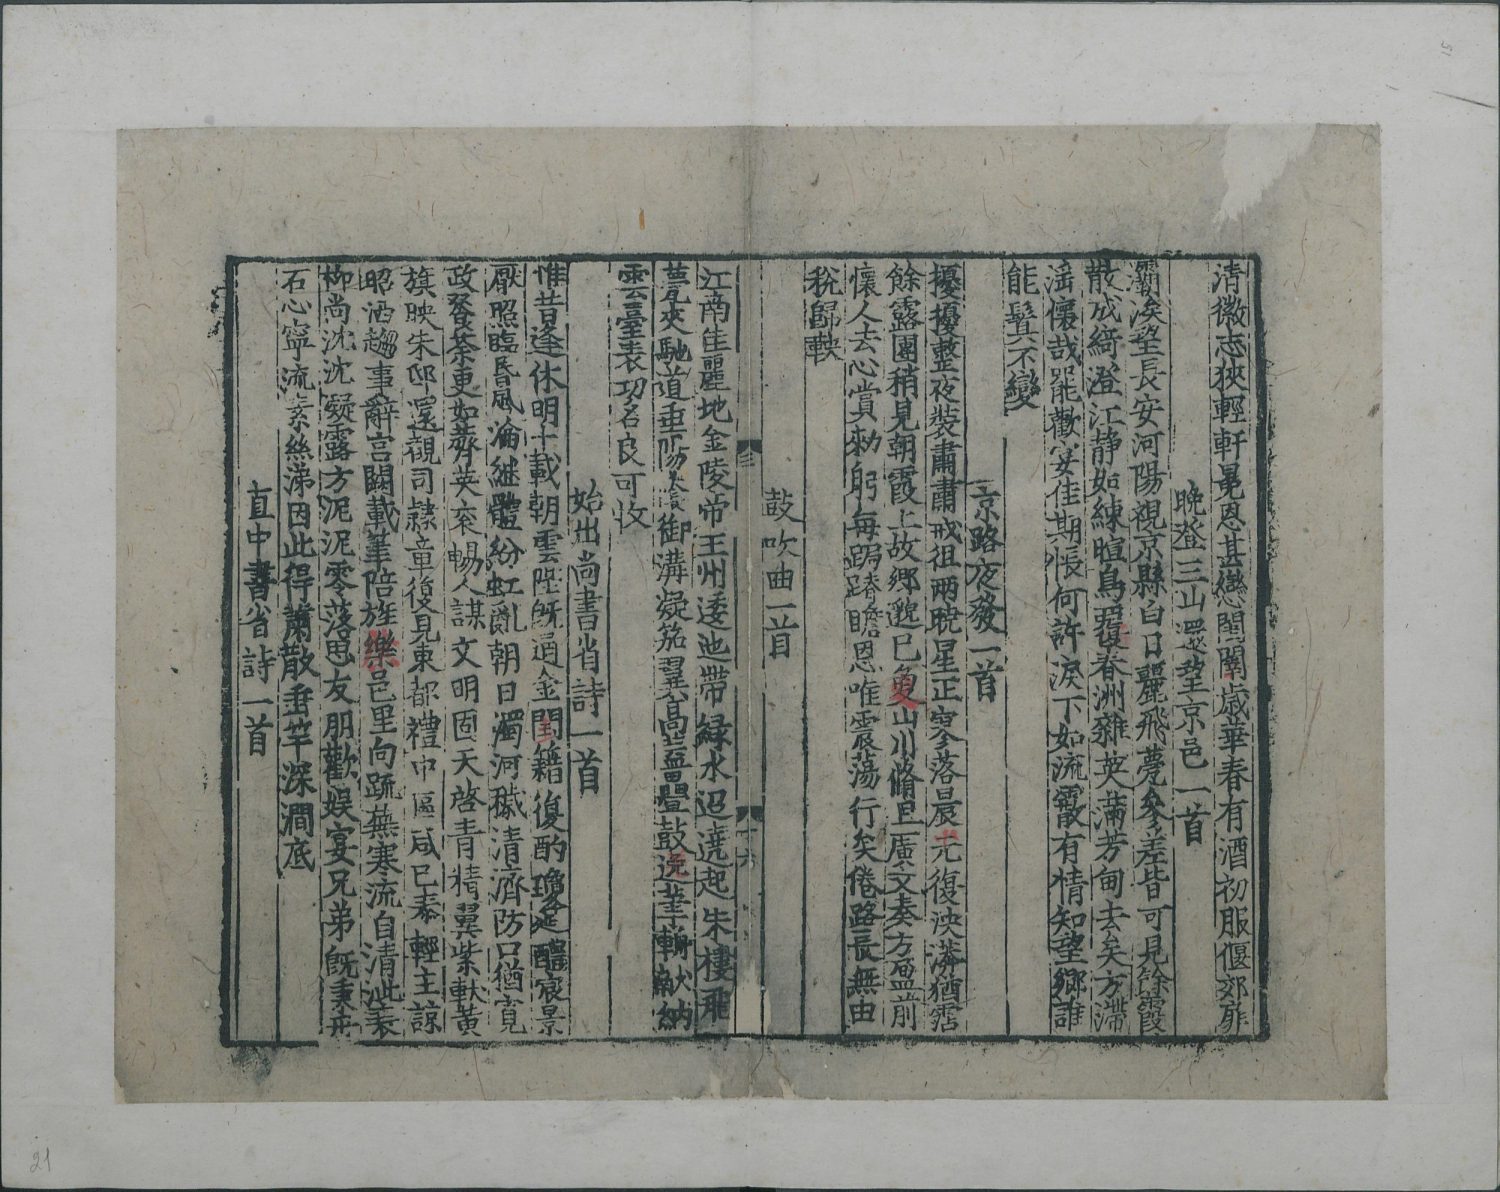 清徽志狹輕軒冕恩甚戀閨闈歲華春有酒初服偃郊扉
晚登三山還望京邑一首
灞涘望長安河陽視京縣白日麗飛甍參差皆可見餘霞
散成綺澄江静如練暄鳥覆春洲雜英滿芳甸去矣方滯
淫懷哉罷歡宴佳期悵何許淚下如流霰有情知望鄉誰
能鬒不變
京路夜發一首
擾擾整夜裝肅肅戒徂兩曉星正寥落晨光復泱漭猶霑
餘露團稍見朝霞上故鄉邈已夐山川脩且廣文奏方盈前
懷人去心賞勑躬每跼蹐瞻恩唯震蕩行矣倦路長無由
稅歸鞅
鼓吹曲一首
三
十六
江南佳麗地金陵帝王州逶迤帶緑水迢遞起朱樓飛
甍夾馳道垂楊蔭御溝凝笳翼高蓋疊鼓送華輈獻納
雲臺表功名良可收
始出尚書省詩一首
惟昔逢休明十載朝雲陛旣通金閨籍復酌瓊筵醴宸景
厭照臨昬風淪繼體紛虹亂朝日濁河穢清濟防口猶寛
政餐荼更如薺英衮暢人謀文明固天啓青精翼紫軑黄
旗映朱邸還覩司隸章復見東都禮中區咸已泰輕生諒
昭洒趨事辭宫闕載筆陪旌棨邑里向疏蕪寒流自清泚衰
柳尚沈沈凝露方泥泥零落悲友朋歡娱宴兄弟旣秉丹
石心寧流素絲涕因此得蕭散垂竿深澗底
直中書省詩一首
21